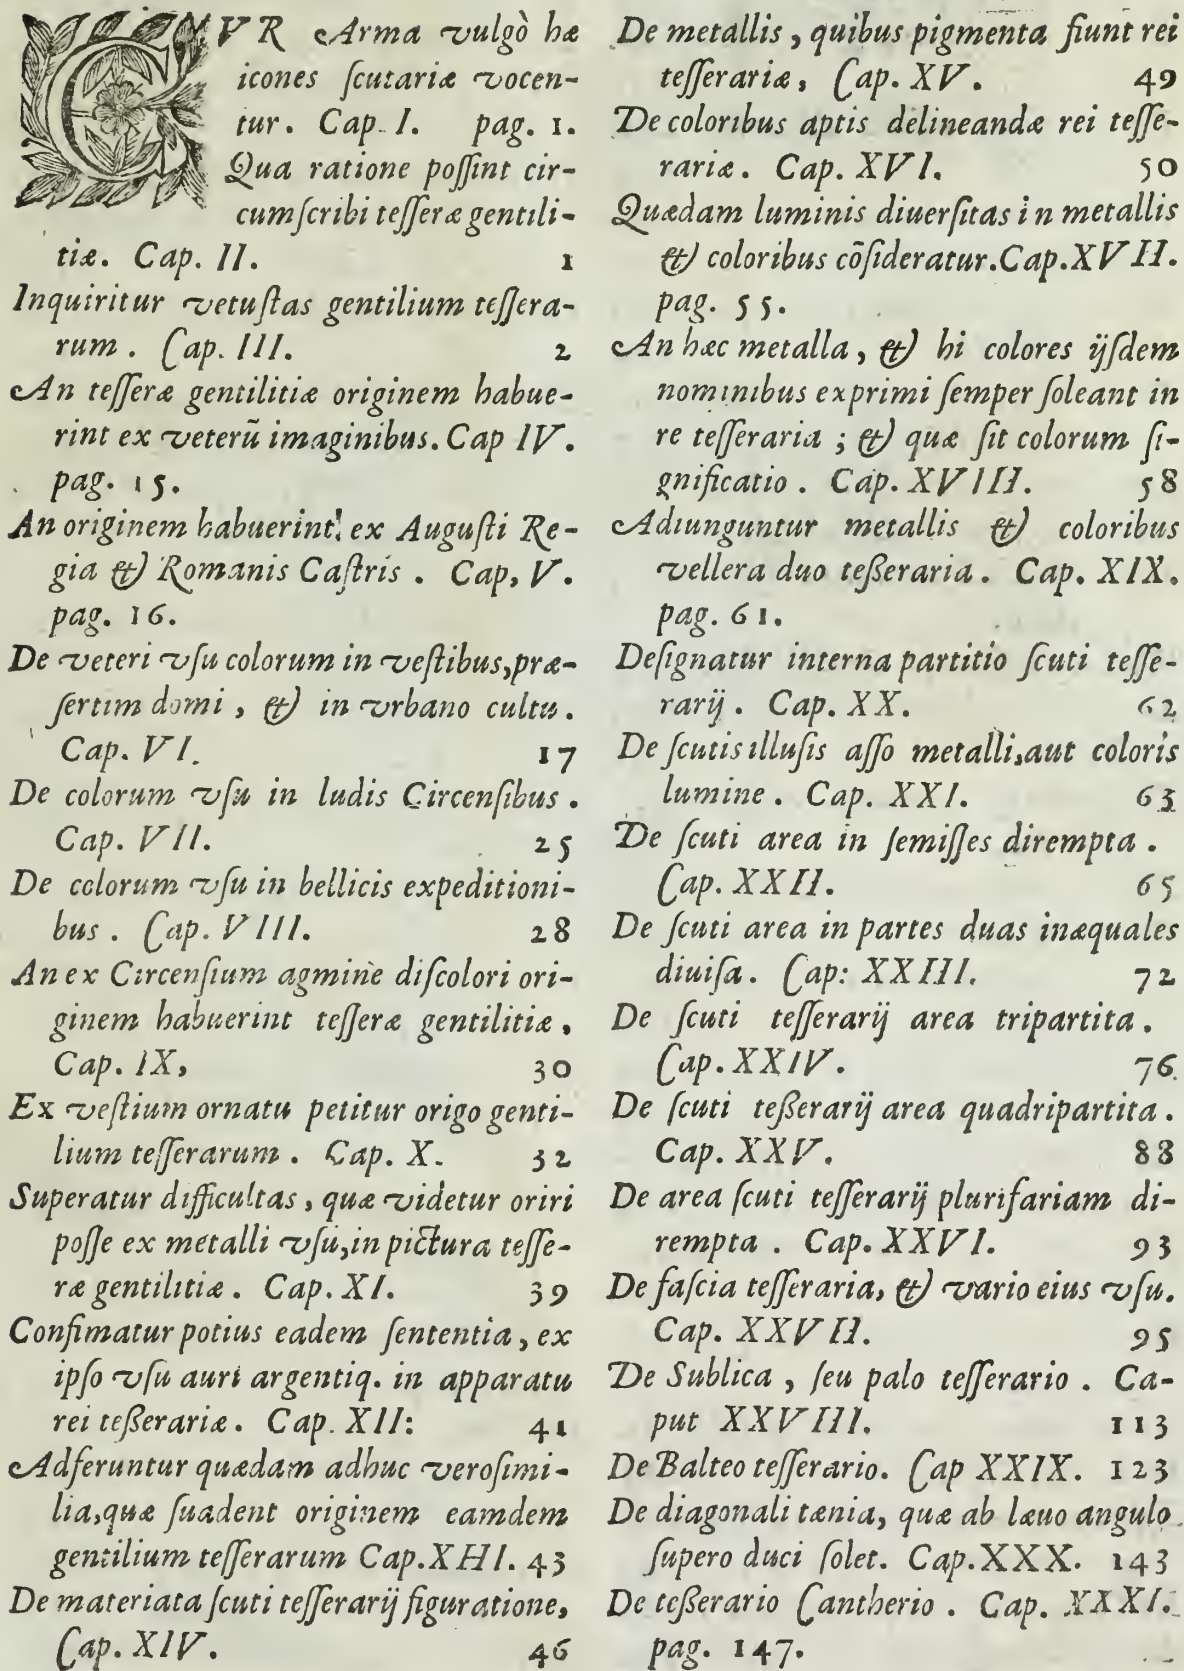 CVR Arma vulgò hæ
icones ſcutariæ vocen-
tur. Cap. I. pag. 1.
Qua ratione poſſint cir-
cumſcribi teſſeræ gentili-
tiæ. Cap. II. 1
Inquiritur vetuſtas gentilium teſſera-
rum. Cap. III. 2
An teſſeræ gentilitiæ originem habue-
rint ex veterũ imaginibus. Cap IV.
pag. 15.
An originem habuerint ex Auguſti Re-
gia & Romanis Caſtris. Cap, V.
pag. 16.
De veteri vſu colorum in veſtibus, præ-
ſertim domi, & in vrbano cultu.
Cap. VI. 17
De colorum vſu in ludis Circenſibus.
Cap. VII. 25
De colorum vſu in bellicis expeditioni-
bus. Cap. VIII. 28
An ex Circenſium agmine diſcolori ori-
ginem habuerint teſſeræ gentilitiæ.
Cap. IX, 30
Ex veſtium ornatu petitur origo genti-
lium teſſerarum. Cap. X. 32
Superatur difficultas, quæ videtur oriri
poſſe ex metalli vſu, in pictura teſſe-
ræ gentilitiæ. Cap. XI. 39
Confimatur potius eadem ſententia, ex
ipſo vſu auri argentiq. in apparatu
rei teßerariæ. Cap. XII: 41
Adferuntur quædam adhuc veroſimi-
lia, quæ ſuadent originem eamdem
gentilium teſſerarum Cap. XIII. 43
De materiata ſcuti teſſerarij figuratione,
Cap. XIV. 46
De metallis, quibus pigmenta fiunt rei
teſſerariæ, Cap. XV. 49
De coloribus aptis delineandæ rei teſſe-
rariæ. Cap. XVI. 50
Quædam luminis diuerſitas in metallis
& coloribus cõſideratur. Cap. XVII.
pag. 55.
An hæc metalla, & hi colores ijſdem
nominibus exprimi ſemper ſoleant in
re teſſeraria; & quæ ſit colorum ſi-
gnificatio. Cap. XVIII. 58
Adiunguntur metallis & coloribus
vellera duo teßeraria. Cap. XIX.
pag. 61.
Deſignatur interna partitio ſcuti teſſe-
rarij. Cap. XX. 62
De ſcutis illuſis aſſo metalli, aut coloris
lumine. Cap. XXI. 63
De ſcuti area in ſemiſſes dirempta.
Cap. XXII. 65
De ſcuti area in partes duas inæquales
diuiſa. Cap: XXIII. 72
De ſcuti teſſerarij area tripartita.
Cap. XXIV. 76
De ſcuti teßerarij area quadripartita.
Cap. XXV. 88
De area ſcuti teſſerarij plurifariam di-
rempta. Cap. XXVI. 93
De faſcia teſſeraria, & vario eius vſu.
Cap. XXVII. 95
De Sublica, ſeu palo teſſerario. Ca-
put XXVIII. 113
De Balteo teſſerario. Cap XXIX. 123
De diagonali tænia, quæ ab læuo angulo
ſupero duci ſolet. Cap. XXX. 143
De teßerario Cantherio. Cap. XXXI.
pag. 147.